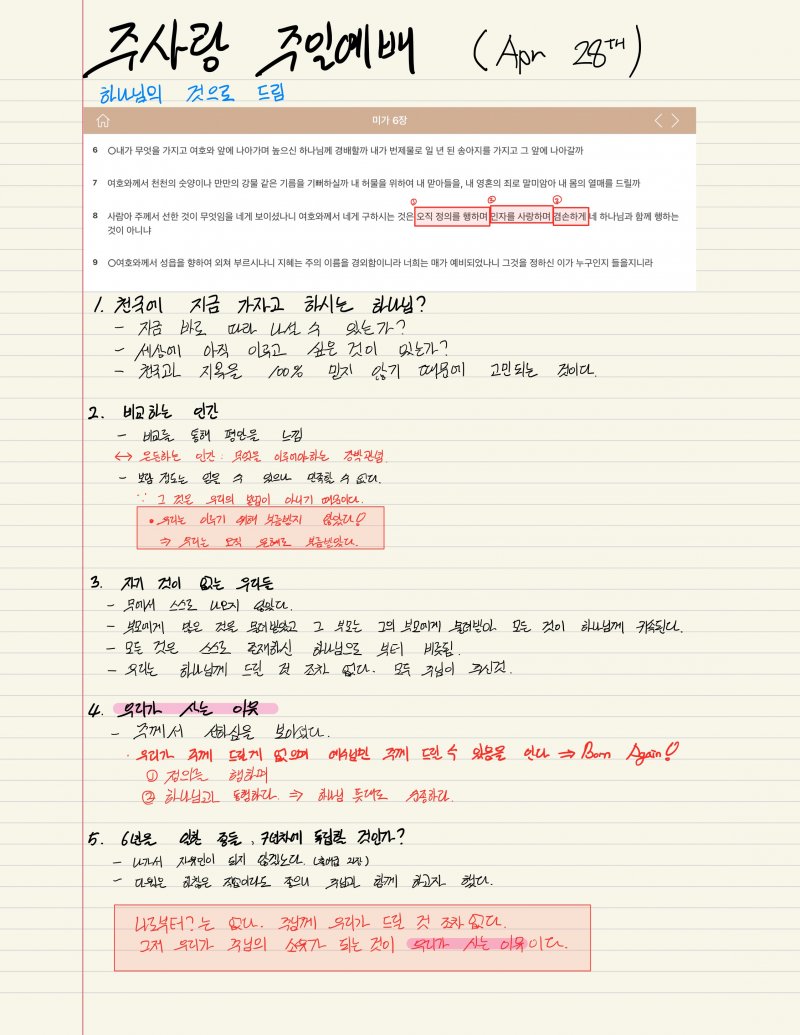 주사랑 주일예배 (Apr 28TH)
하나님의 것으로 드림
미가 6장
6 ○내가 무엇을 가지고 여호와 앞에 나아가며 높으신 하나님께 경배할까 내가 번제물로 일 년 된 송아지를 가지고 그 앞에 나아갈까
7 여호와께서 천천의 숫양이나 만만의 강물 같은 기름을 기뻐하실까 내 허물을 위하여 내 맏아들을, 내 영혼의 죄로 말미암아 내 몸의 열매를 드릴까
① ② ③
8 사람아 주께서 선한 것이 무엇임을 네게 보이셨나니 여호와께서 네게 구하시는 것은 오직 정의를 행하며 인자를 사랑하며 겸손하게 네 하나님과 함께 행하는
것이 아니냐
9 ○여호와께서 성읍을 향하여 외쳐 부르시나니 지혜는 주의 이름을 경외함이니라 너희는 매가 예비되었나니 그것을 정하신 이가 누구인지 들을지니라
1. 천국에 지금 가자고 하시는 하나님?
- 지금 바로 따라 나설 수 있는가?
- 세상에 아직 이루고 싶은 것이 있는가?
- 천국과 지옥을 100% 믿지 않기 때문에 고민되는 것이다.
2. 비교하는 인간
- 비교를 통해 평안을 느낌
↔ 인간 : 무엇을 이루어야하는 강박관념.
- 보람 정도는 있을 수 있으나 만족할 수 없다.
∵ 그 것은 우리의 본업이 아니기 때문이다.
• 우리는 이루기 위해 부름받지 않았다!
⇒ 우리는 오직 은혜로 부름받았다.
3. 자기 것이 없는 우리들
- 무에서 스스로 나오지 않았다.
- 부모에게 많은 것을 물려받았고 그 부모는 그의 부모에게 물려받아 모든 것이 하나님께 귀속된다.
- 모든 것은 스스로 존재하신 하나님으로 부터 비롯됨.
- 우리는 하나님께 드릴 것 조차 없다. 모두 주님이 주신것.
4. 우리가 사는 이유
- 주께서 선하심을 보이셨다.
· 우리가 주께 드릴게 없으며 예수님만 주께 드릴 수 있음을 안다 ⇒ Born Again!
① 정의를 행하며
② 하나님과 동행하다. ⇒ 하나님 뜻대로 순종하다.
5. 6년을 일한 종들, 7년차에 독립할 것인가?
- 나가서 자유인이 되지 않겠노다. (출애굽 21장)
- 다윗은 하찮은 직업이라도 좋으니 주님과 함께 하고자 했다.
나로부터?는 없다. 주님께 우리가 드릴 것 조차 없다.
그저 우리가 주님의 소유가 되는 것이 우리가 사는 이유이다.